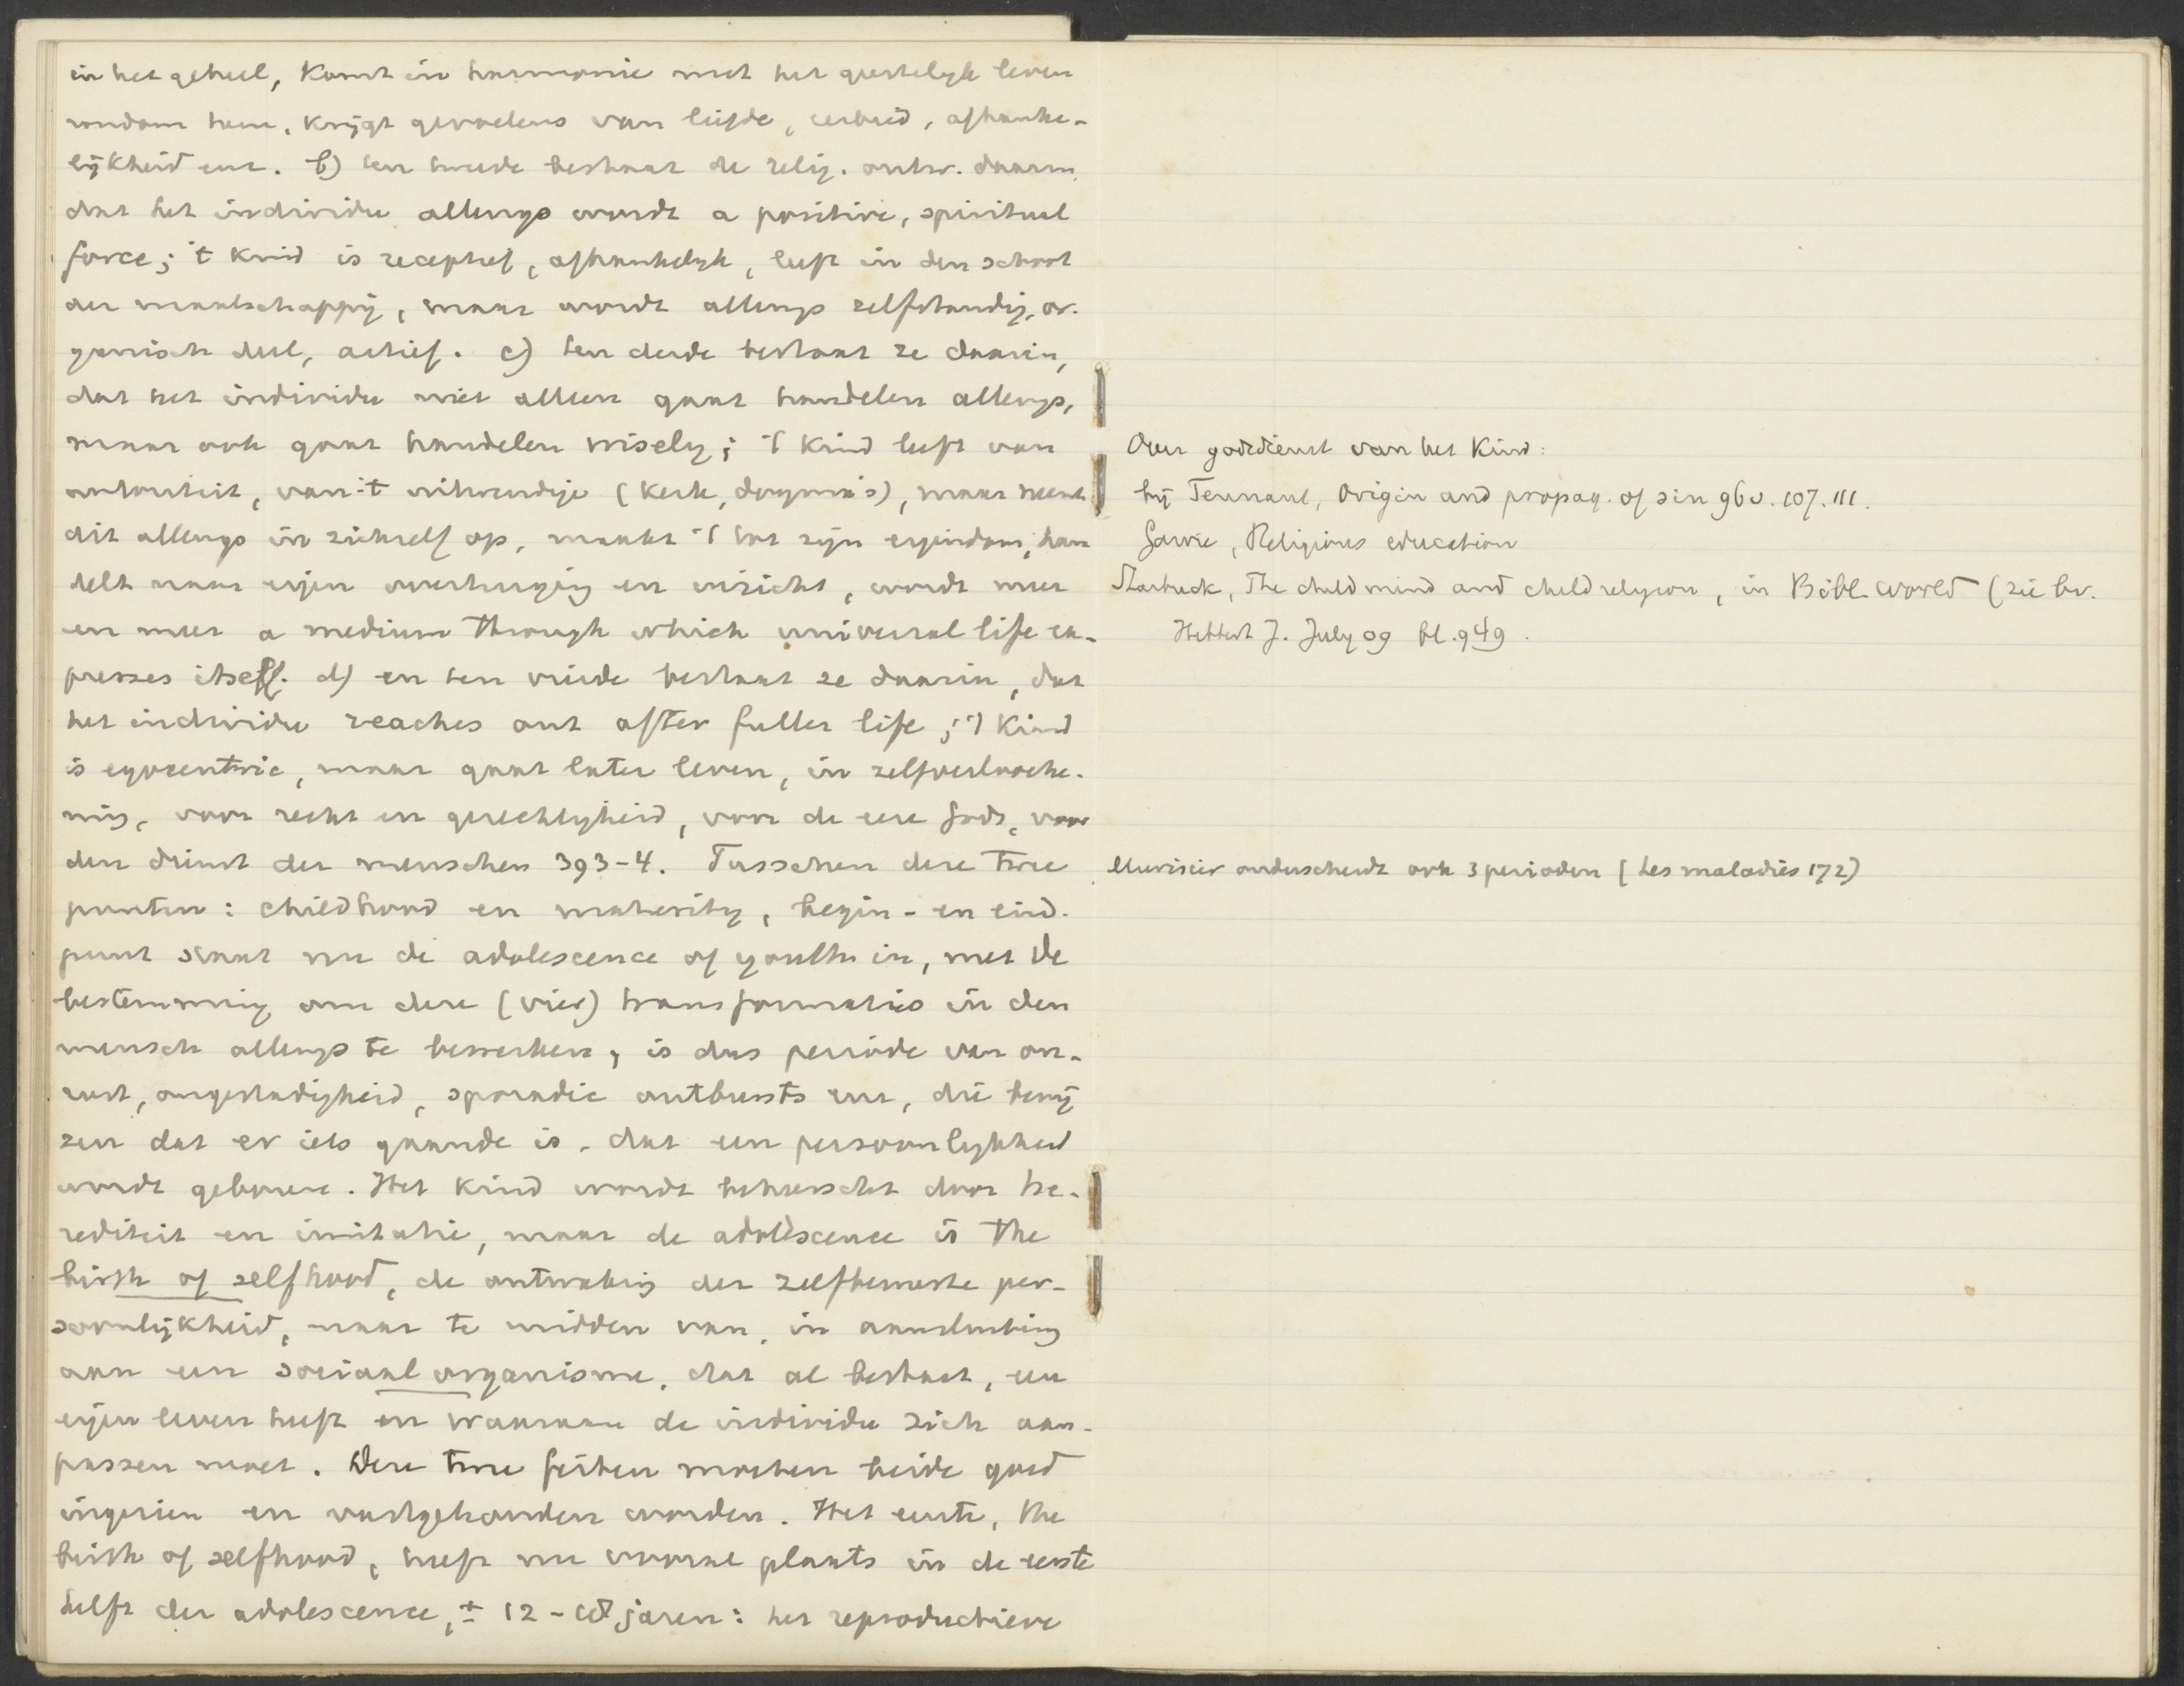 in het geheel, komt in harmonie met het geestelijk leven
rondom hem, krijgt gevoelens van liefde, eerbied, afhanke-
lijkheid enz. b) ten tweede bestaat de relig. ontw. daarin,
dat het individu allengs wordt a positive, spiritual
force; 't kind is receptief, afhankelijk, leeft in den schoot
der maatschappij, maar wordt allengs zelfstandig, or-
ganisch deel, actief. c) ten derde bestaat ze daarin,
dat het individu niet alleen gaat handelen allengs,
maar ook gaat handelen wisely; 't kind leeft van
autoriteit, van 't uitwendige (kerk, dogma's), maar neemt
dit allengs in zichzelf op, maakt 't tot zijn eigendom, han
delt naar eigen overtuiging en inzicht, wordt meer
en meer a medium through which universal life ex-
presses itself. d) en ten vierde bestaat ze daarin, dat
het individu reaches out after fuller life; 't kind
is egocentric, maar gaat later leven, in zelfverlooche-
ning, voor recht en gerechtigheid, voor de eere Gods, voor
den dienst der menschen 393-4. Tusschen deze twee
punten: childhood en maturity, begin- en eind-
punt staat nu de adolescence of youth in, met de
bestemming om deze (vier) transformaties in den
mensch allengs te bewerken, is dus periode van on-
rust, ongestadigheid, sporadic outbursts enz, die bewij
zen dat er iets gaande is, dat een persoonlijkheid
wordt geboren. Het kind wordt beheerscht door he-
rediteit en imitatie, maar de adolescence is the
birth of selfhood, de ontwaking der zelfbewuste per-
soonlijkheid, maar te midden van, in aansluiting
aan een sociaal organisme, dat al bestaat, een
eigen leven heeft en waaraan de individu zich aan-
passen moet. Deze twee feiten moeten beide goed
ingezien en vastgehouden worden. Het eerste, the
birth of selfhood, heeft nu vooral plaats in de eerste
helft der adolescence, ± 12-18 jaren: het reproductieve
Over godsdienst van het kind:
bij Tennant, Origin and propag. of sin 96v. 107. 111.
Garvie, Religious education
Starbuck, The child mind and child religion, in Bibl. World (zie bv.
Hibbert J. July 09 bl. 949.
Murisier onderscheidt ook 3 perioden (Les maladies 172)